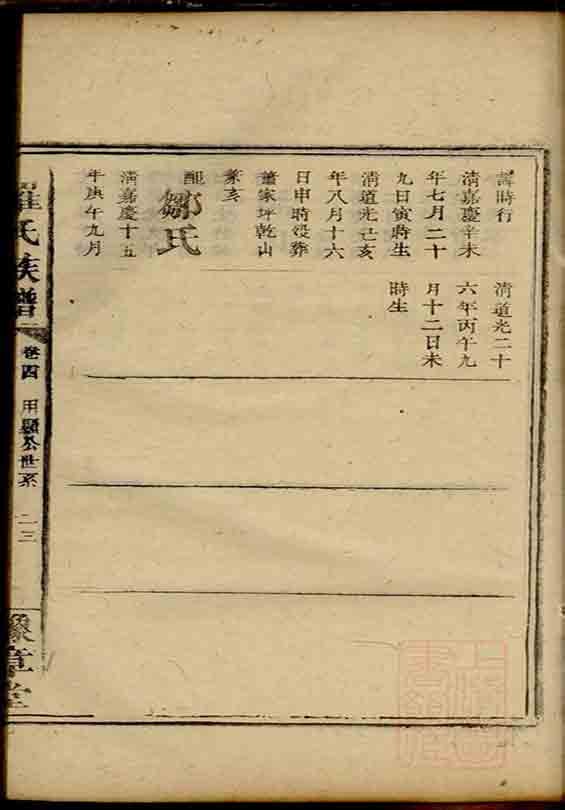 諱時行
清嘉慶辛未
年七月二十
九日寅時生
清道光己亥
年八月十六
日申時歿葬
董家坪乾山
兼亥
配
鄒氏
清嘉慶十五
年庚午九月
清道光二十
六年丙午九
月十二日未
時生
羅氏族譜
卷四
用顯公世系
二三
豫章堂